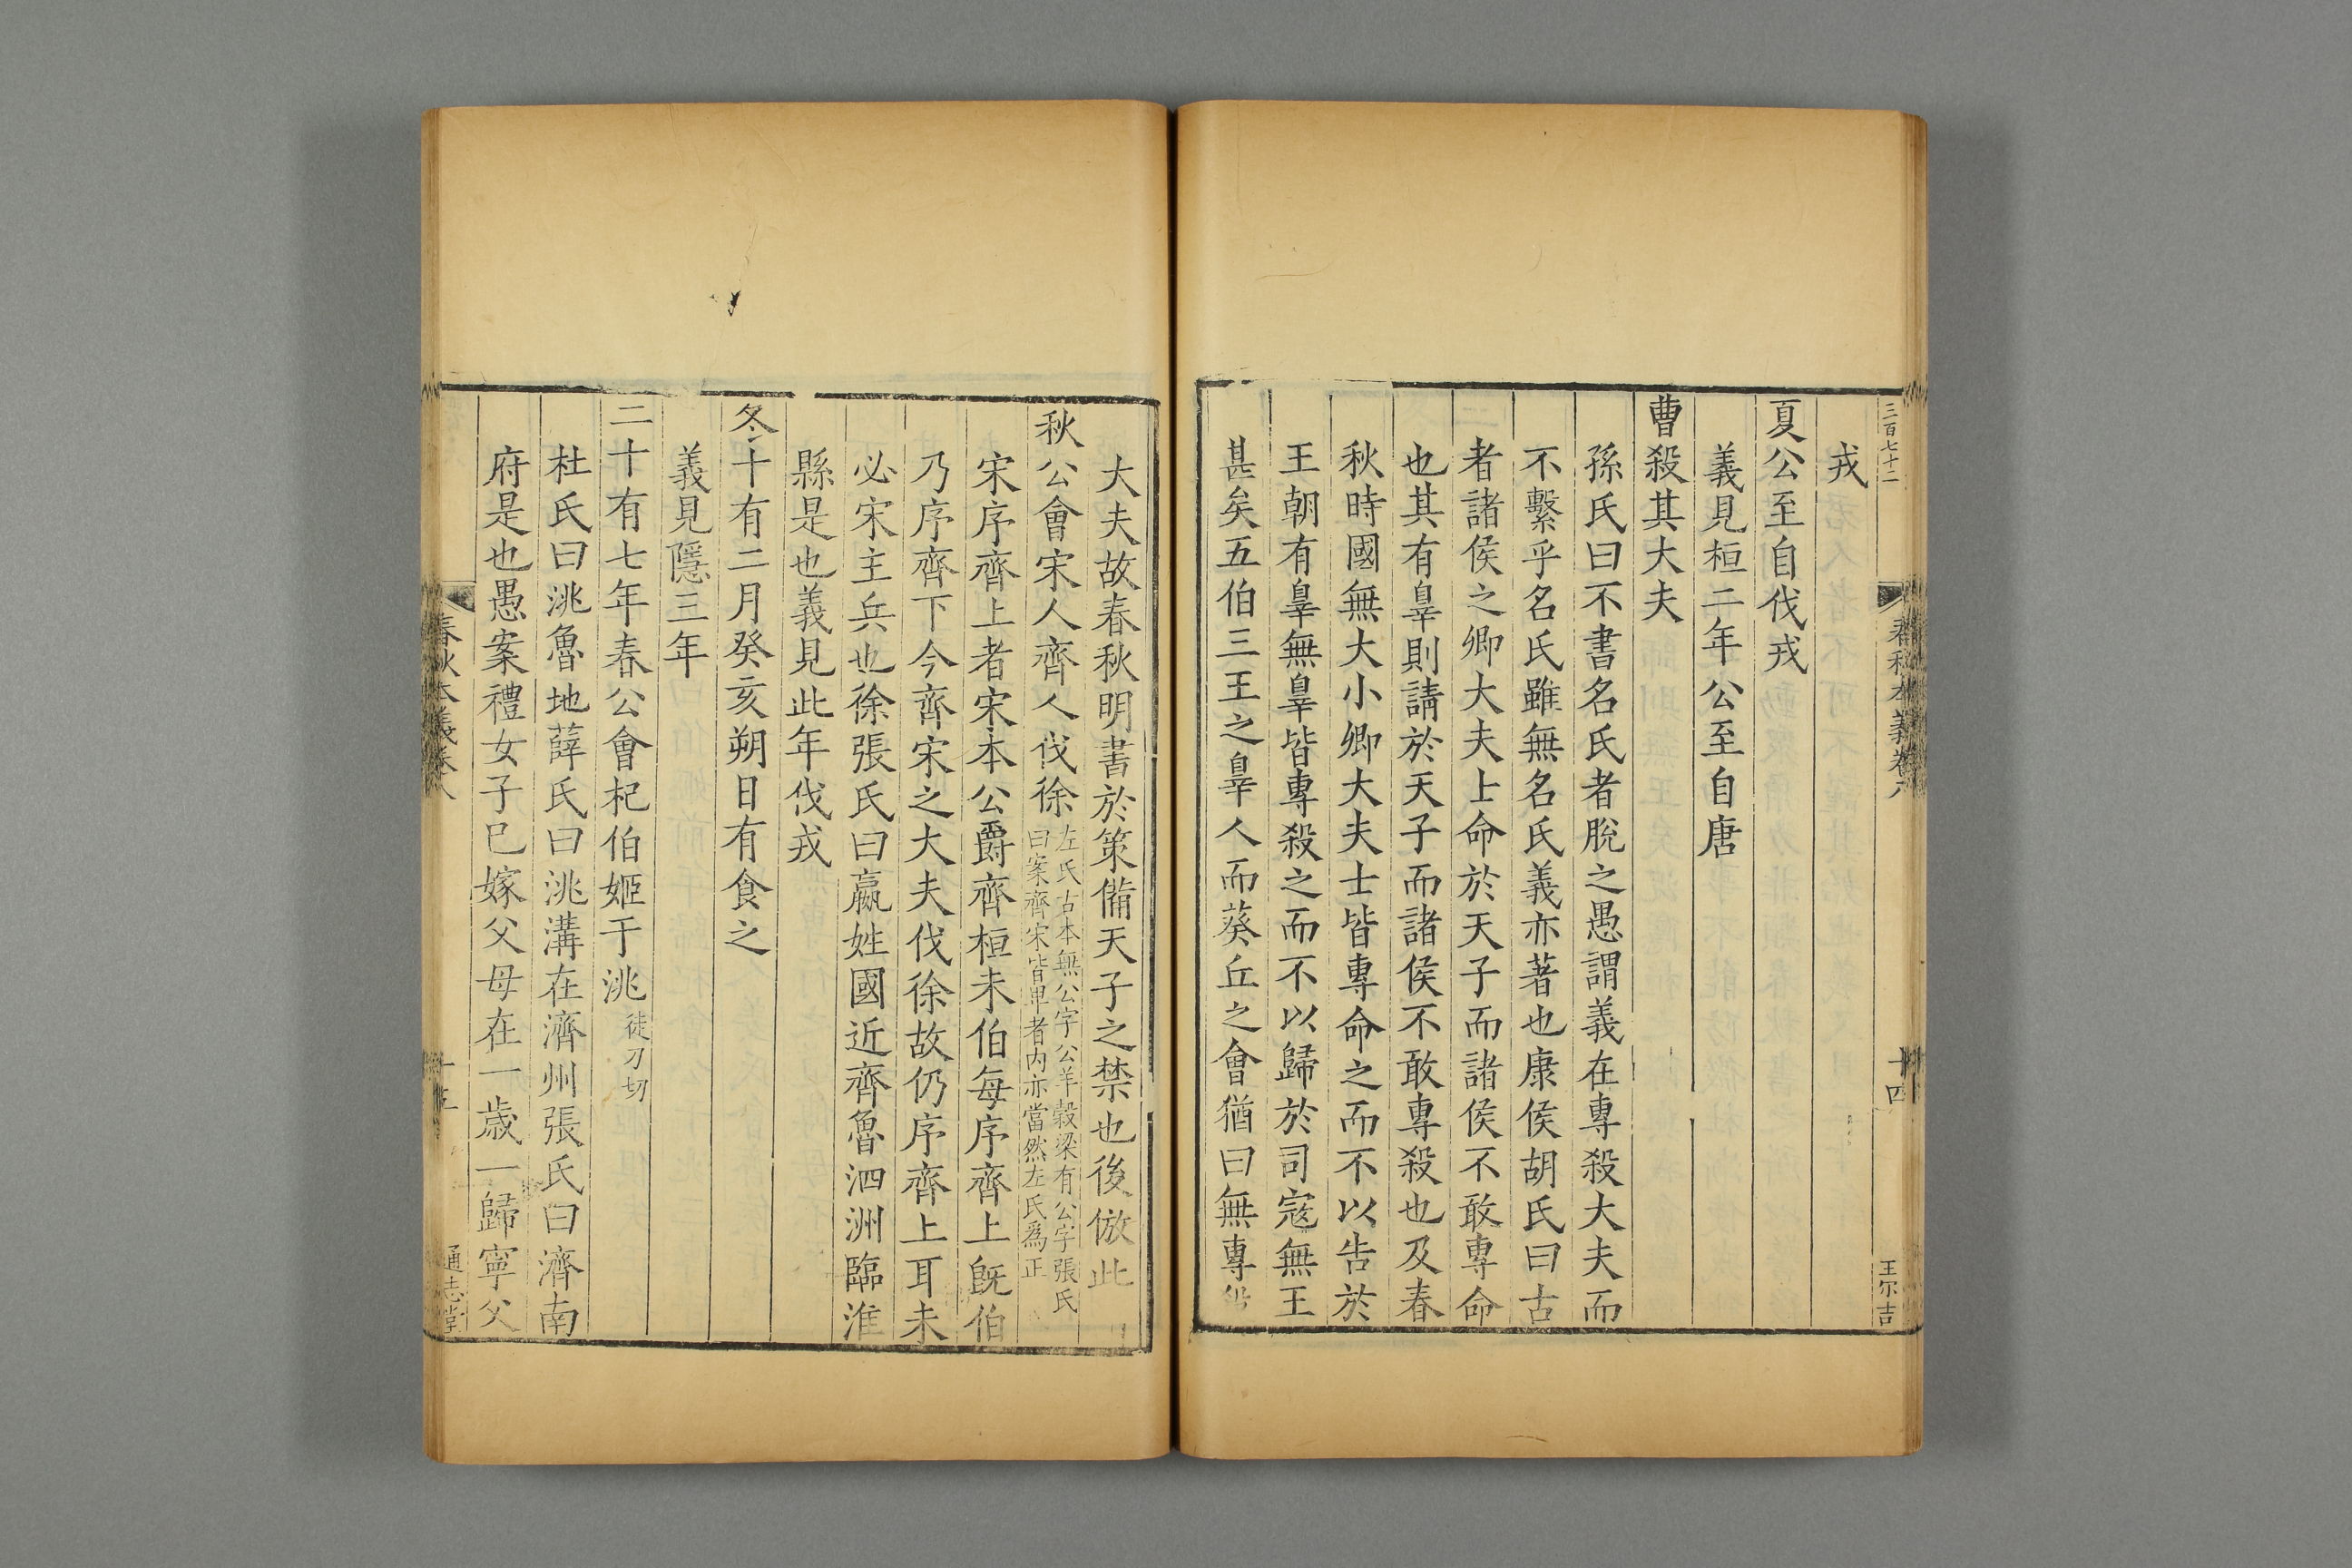 三百七十二
春秋本義卷八
十四
王尔吉
戎
夏公至自伐戎
義見桓二年公至自唐
曹殺其大夫
孫氏曰不書名氏者脫之愚謂義在專殺大夫而
不繫乎名氏雖無名氏義亦著也康侯胡氏曰古
者諸侯之卿大夫上命於天子而諸侯不敢專命
也其有辠則請於天子而諸侯不敢專殺也及春
秋時國無大小卿大夫士皆專命之而不以告於
王朝有辠無辠皆專殺之而不以歸於司寇無王
甚矣五伯三王之辠人而葵丘之會猶曰無專殺
大夫故春秋明書於策備天子之禁也後倣此
秋公會宋人齊人伐徐
左氏古本無公字公羊穀梁有公字張氏
曰案齊宋皆卑者内亦當然左氏爲正
宋序齊上者宋本公爵齊桓未伯每序齊上既伯
乃序齊下今齊宋之大夫伐徐故仍序齊上耳未
必宋主兵也徐張氏曰嬴姓國近齊魯泗洲臨淮
縣是也義見此年伐戎
冬十有二月癸亥朔日有食之
義見隱三年
二十有七年春公會杞伯姬于洮
徒刀切
杜氏曰洮魯地薛氏曰洮溝在濟州張氏曰濟南
府是也愚案禮女子已嫁父母在一歲一歸寧父
春秋本義卷八
十五
通志堂